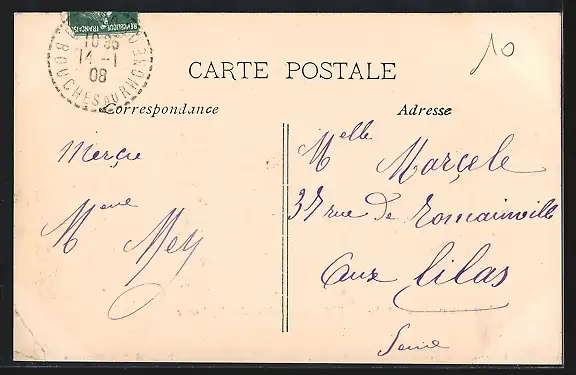 RÉPUBLIQUE FRANÇAISE
10 35
14 - 1
08
BOUCHES DU RHONE
10
CARTE POSTALE
Correspondance
Adresse
Merçie
Mme Mey
Melle Marçele
37 rue de Romainville
aux lilas
Seine